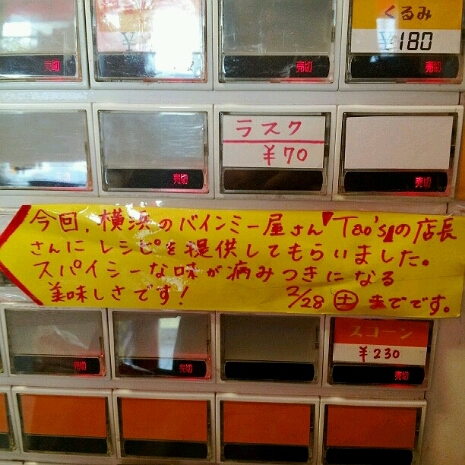 くるみ
¥180
売切
売切
売切
売切
ラスク
¥70
売切
売切
今回、横浜のバインミー屋さん『Tao's』の店長
さんにレシピを提供してもらいました。
スパイシーな味が病みつきになる
美味しさです! 2/28(土)までです。
スコーン
¥230
売切
売切
売切